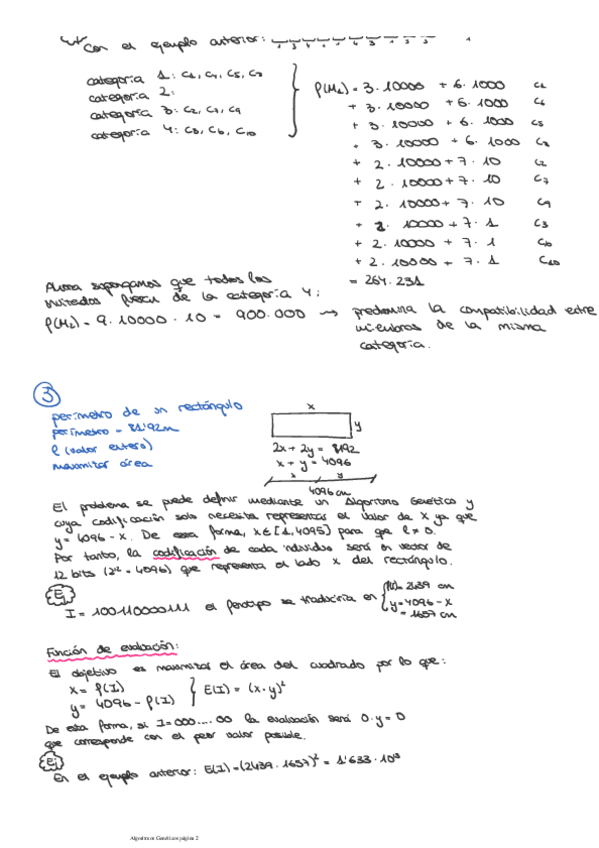 Con el ejemplo anterior: 1 3 4 1 1 4 3 1 3 4
categoría 1: C1, C4, C5, C8
categoría 2:
categoría 3: C2, C7, C9
categoría 4: C3, C6, C10
f(M1) = 3·10000 + 6·1000 C1
+ 3·10000 + 6·1000
+ 3·10000 + 6·1000 C5
+ 3·10000 + 6·1000 C8
+ 2·10000 + 7·10 C2
+ 2·10000 + 7·10 C7
+ 2·10000 + 7·10 C9
+ 2·10000 + 7·1 C3
+ 2·10000 + 7·1
+ 2·10000 + 7·1 C10
= 264.231
Ahora supongamos que todos los
invitados fuesen de la categoría 4:
f(M2) = 9·10000·10 = 900.000 → predomina la compatibilidad entre
miembros de la misma
categoría.
3
perímetro de un rectángulo
perímetro = 81'92m
l (valor entero)
maximizar área
x
y
2x + 2y = 8192
x + y = 4096
x y
4096 cm
El problema se puede definir mediante un Algoritmo Genético y
cuya codificación solo necesita representar el valor de x ya que
y = 4096 - x. De esta forma, x∈[1,4095] para que l ≠ 0.
Por tanto, la codificación de cada individuo será un vector de
12 bits (2^12 = 4096) que representa el lado x del rectángulo.
Ej
I = 100110000111 el fenotipo se traduciría en f(I) = 2439 cm
y = 4096 - x
= 1657 cm
Función de evaluación:
El objetivo es maximizar el área del cuadrado por lo que:
x = f(I)
y = 4096 - f(I) } E(I) = (x·y)²
De esta forma, si I = 000....00 la evaluación será 0·y = 0
que corresponde con el peor valor posible.
Ej
En el ejemplo anterior: E(I) = (2439·1657)² = 1'633·10¹³
Algoritmos Genéticos página 2